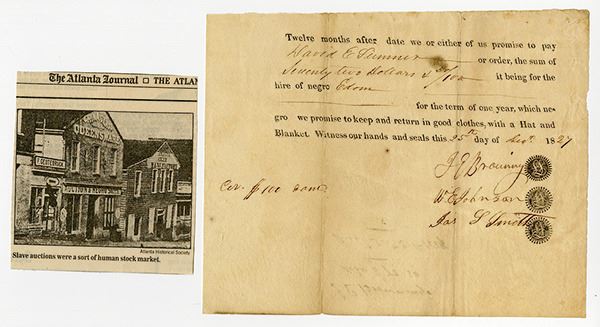 The Atlanta Journal □ THE ATLAN
QUEENSWARE
AUCTION & NEGRO SALES
Atlanta Historical Society
Slave auctions were a sort of human stock market.
Twelve months after date we or either of us promise to pay
David E Sumner or order, the sum of
Seventy two Dollars & 50/100 it being for the
hire of negro Edom
for the term of one year, which ne-
gro we promise to keep and return in good clothes, with a Hat and
Blanket. Witness our hands and seals this 25th day of Decr 1827
J E Browning
W E Johnson
Jas S Smith